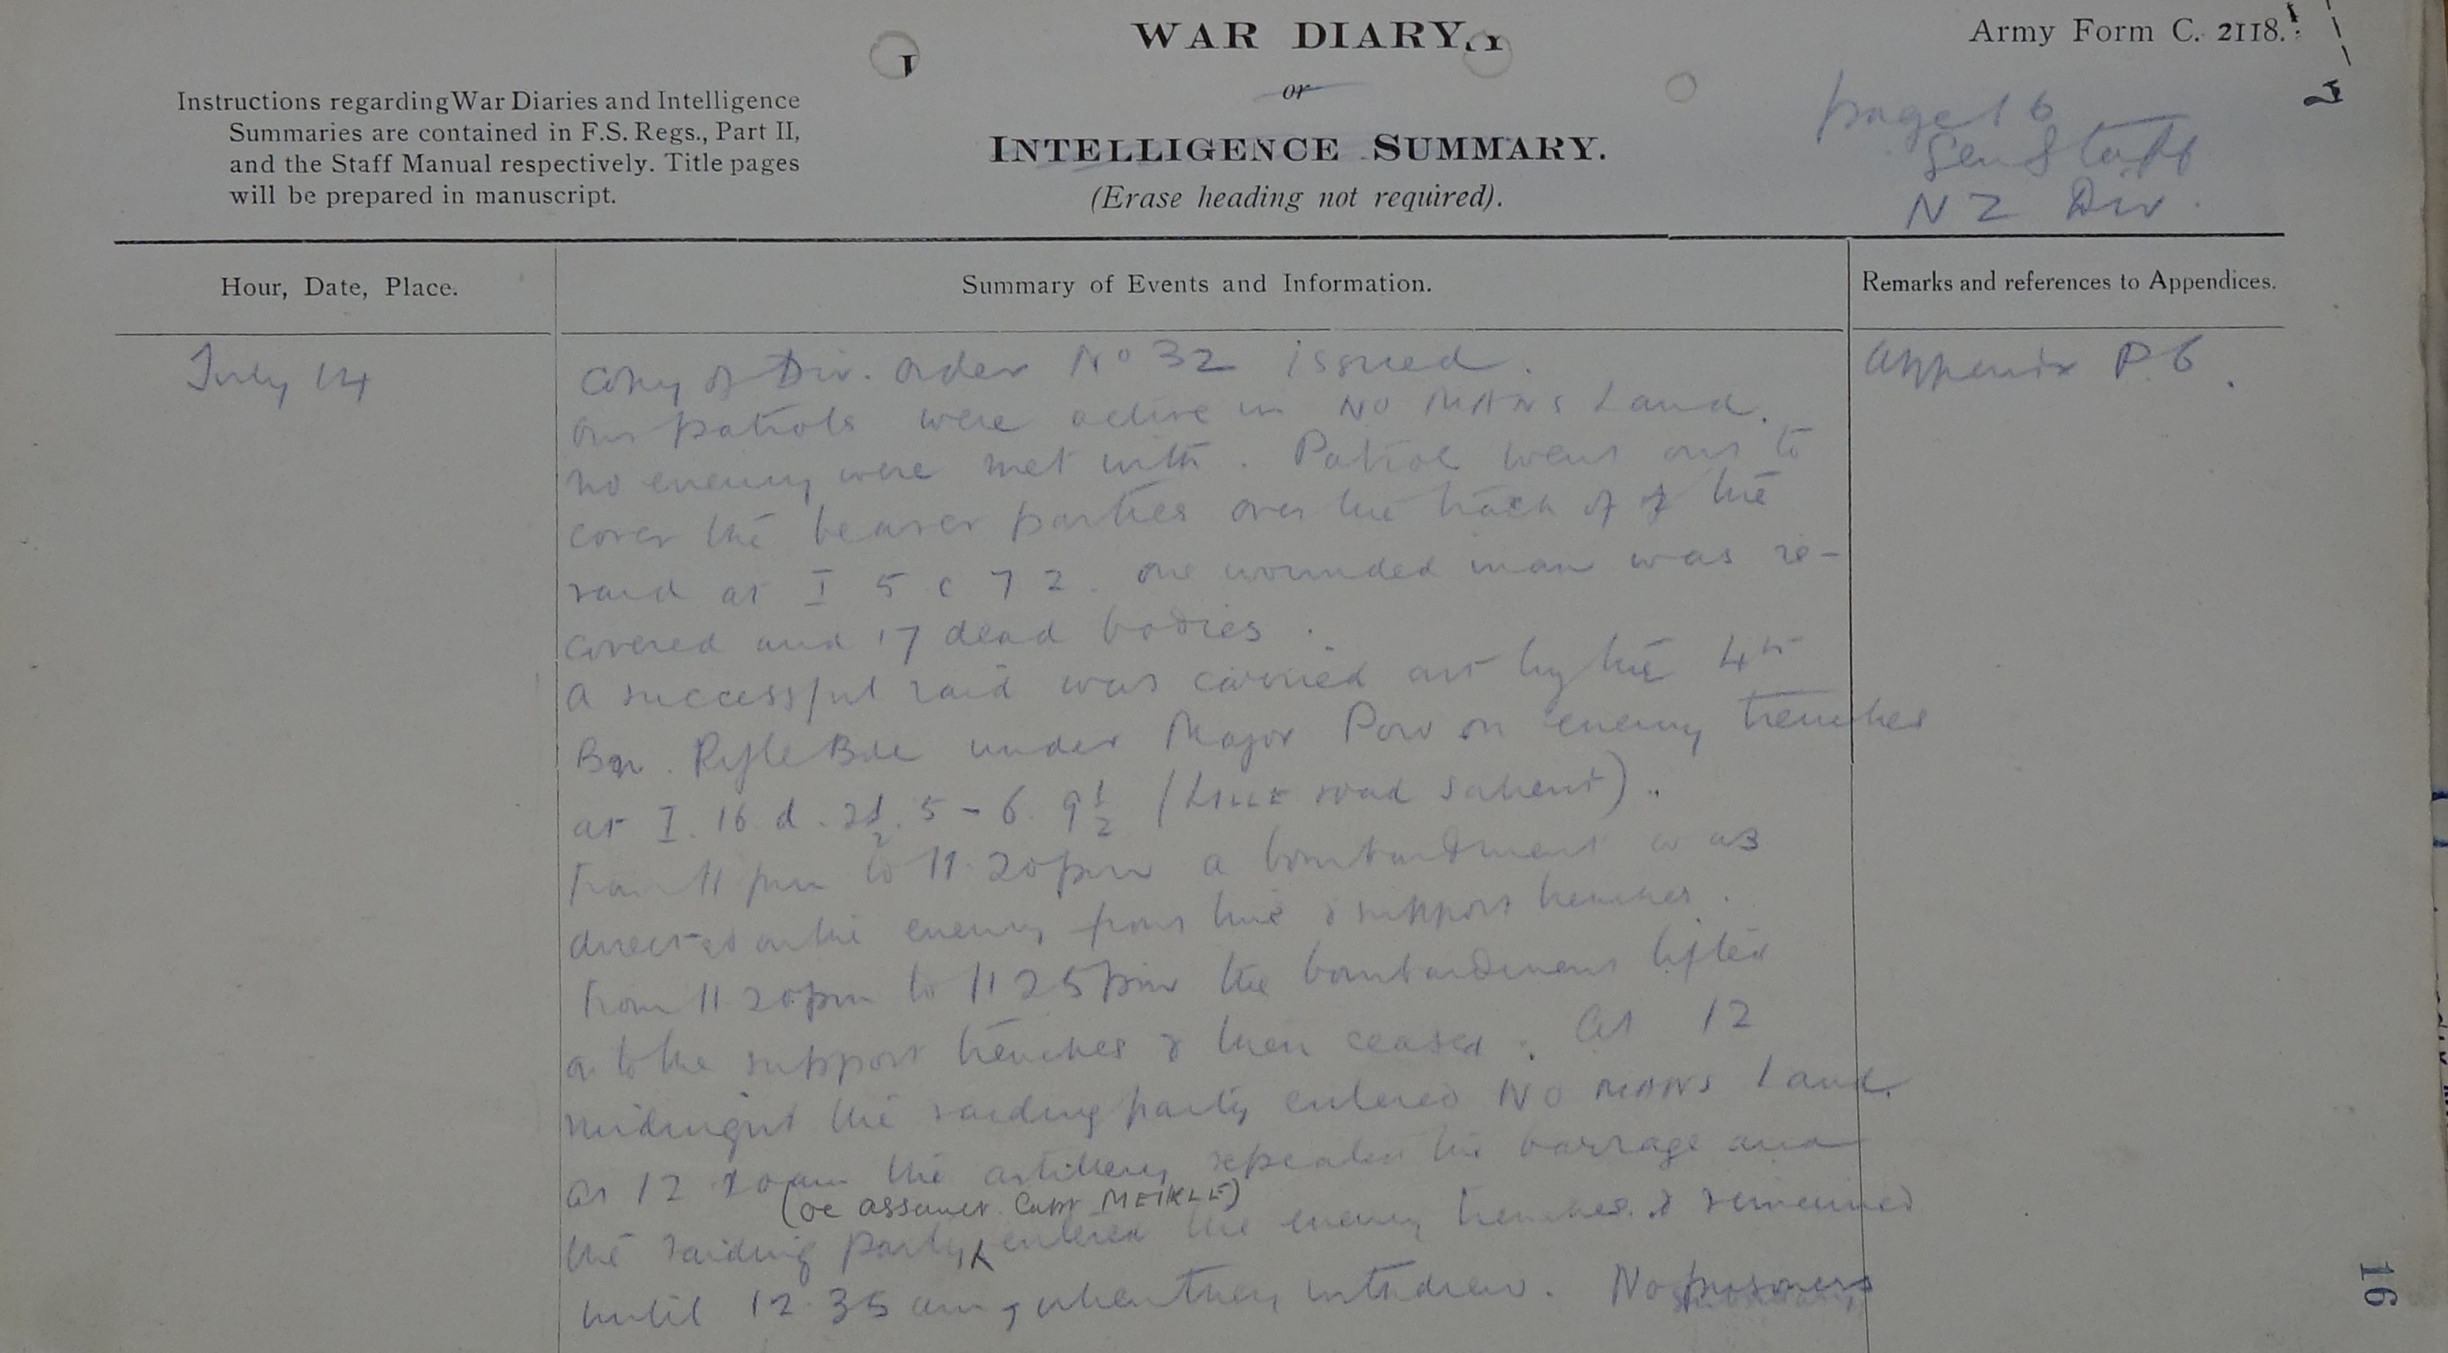 WAR DIARY
or
INTELLIGENCE SUMMARY.
(Erase heading not required).
Army Form C. 2118.
Instructions regarding War Diaries and Intelligence
Summaries are contained in F.S. Regs., Part II,
and the Staff Manual respectively. Title pages
will be prepared in manuscript.
page 16
Gen Staff
NZ Div.
Hour, Date, Place.
Summary of Events and Information.
Remarks and references to Appendices.
July 14
Copy of Div. Order No 32 issued.
Appendix P.6.
Our patrols were active in NO MANS Land.
No enemy were met with. Patrol went out to
cover the bearer parties over the track of of the
raid at I 5 c 7 2. One wounded man was re-
covered and 17 dead bodies.
A successful raid was carried out by the 4th
Bn. Rifle Bde under Major Pow on enemy trenches
at I. 16. d. 2½. 5 - 6. 9½ (LILLE road salient).
From 11 pm to 11.20 pm a bombardment was
directed on the enemy front line & support trenches.
From 11.20 pm to 11 25 pm the bombardment lifted
on to the support trenches & then ceased. At 12
midnight the raiding party entered NO MANS Land.
At 12 20 am the artillery repeated the barrage and
(OC assault. Capt MEIKLE)
the raiding party entered the enemy trenches & remained
until 12.35 am, when they withdrew. No prisoners
16